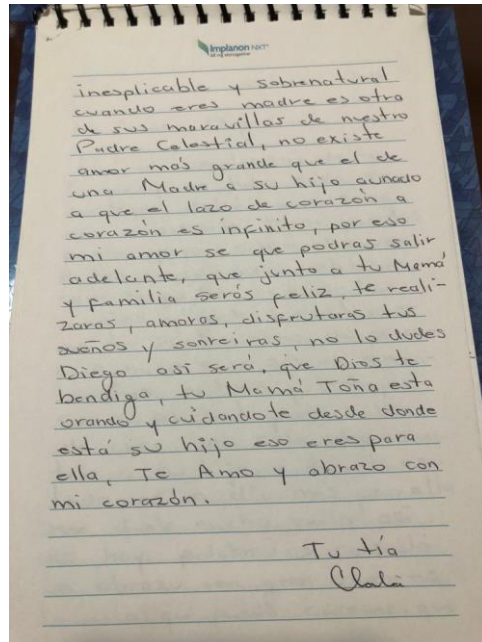 Implanon NXT
inesplicable y sobrenatural
cuando eres madre es otra
de sus maravillas de nuestro
Padre Celestial, no existe
amor más grande que el de
una Madre a su hijo aunado
a que el lazo de corazón a
corazón es infinito, por eso
mi amor se que podras salir
adelante, que junto a tu Mamá
y familia serás feliz, te reali-
zaras, amaras, disfrutaras tus
sueños y sonreiras, no lo dudes
Diego así será, que Dios te
bendiga, tu Mamá Toña esta
orando y cuidandote desde donde
está su hijo eso eres para
ella, Te Amo y abrazo con
mi corazón.
Tu tía